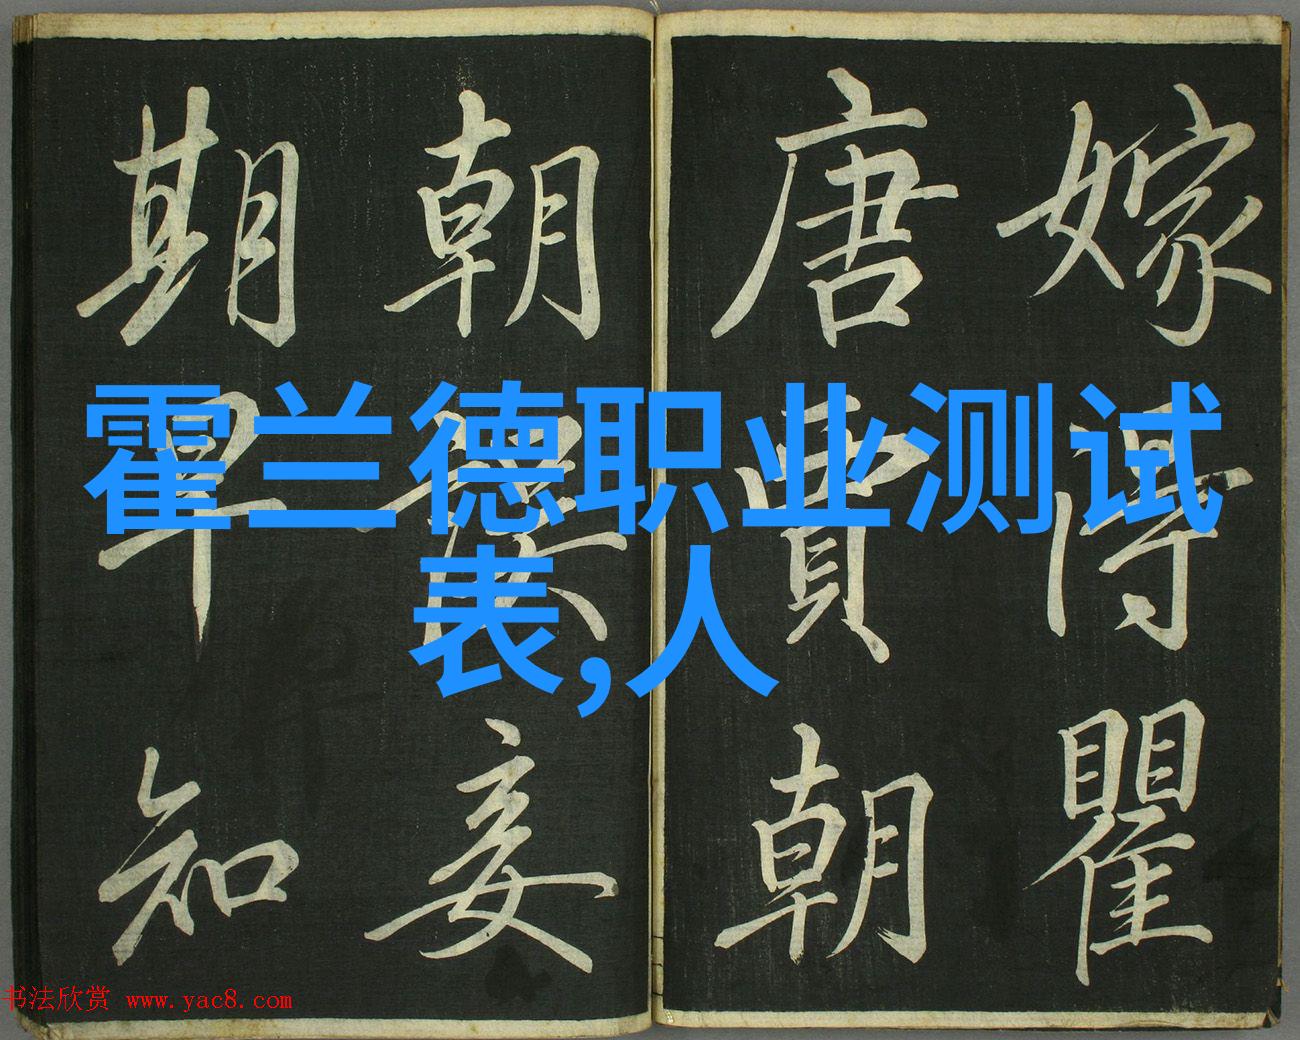 霍兰德职业测试
表,人
嫁得瞿
唐賈朝
朝妾
期早知
书法欣赏 www.yac8.com